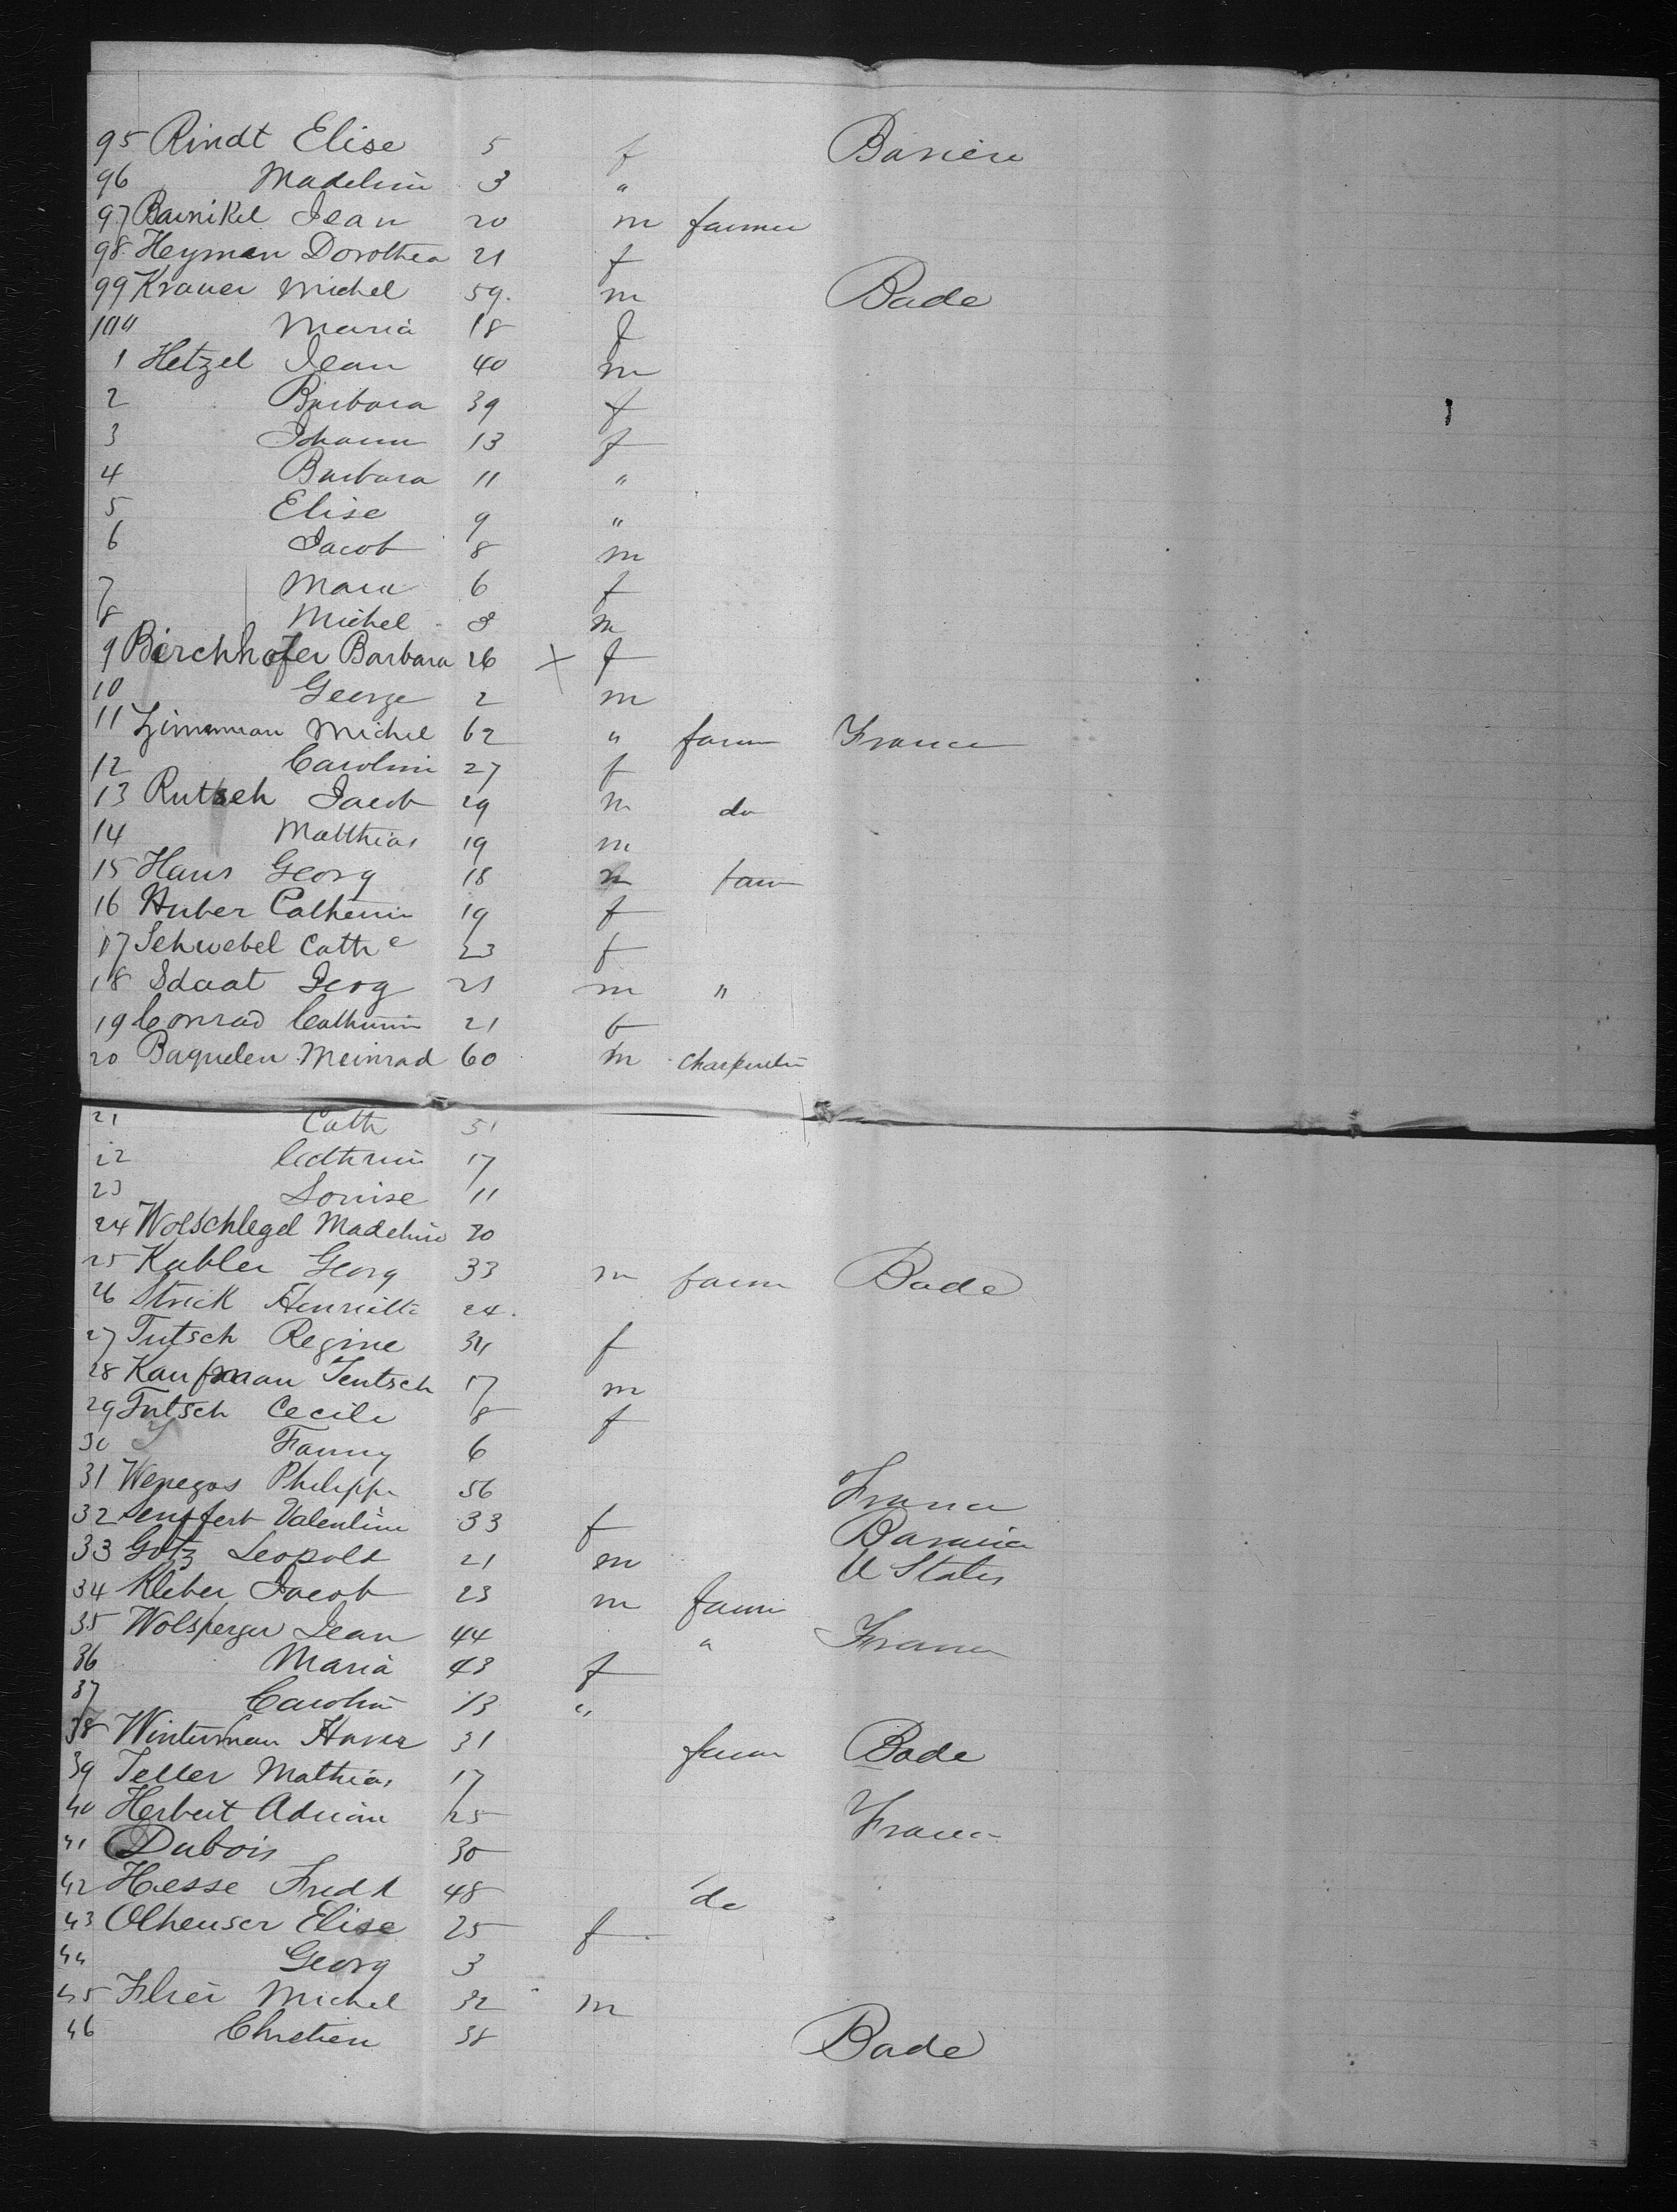 95 Rindt Elise 5 f Bavière
96 Madeline 3 "
97 Barnikel Jean 20 m farmer
98 Heyman Dorothea 21 f
99 Krauer Michel 59 m Bade
100 Maria 18 f
1 Hetzel Jean 40 m
2 Barbara 39 f
3 Johann 13 f
4 Barbara 11 "
5 Elise 9 "
6 Jacob 8 m
7 Maria 6 f
8 Michel m
9 Birchhofer Barbara 26 X f
10 George 2 m
11 Zimmerman Michel 62 " farm France
12 Caroline 27 f
13 Rutsch Jacob 29 m do
14 Matthias 19 m
15 Hans Georg 18 m farm
16 Huber Catherine 19 f
17 Schwebel Cath e 23 f
18 Sdaat Georg 21 m "
19 Conrad Catherine 21 f
20 Baquelen Meinrad 60 m Charpentier
21 Cath 51
22 Cathrine 17
23 Louise 11
24 Wolschlegel Madeline 20
25 Kubler Georg 33 m farm Bade
26 Strick Henriette 24
27 Tutsch Regine 34 f
28 Kaufman Tentsch 17 m
29 Tutsch Cecile 8 f
30 Fanny 6
31 Philippe 56 France
32 Senffert Valentine 33 f Bavaria
33 Götz Leopold 21 m U States
34 Kleber Jacob 23 m farm
35 Wolsperger Jean 44 " France
36 Maria 43 f
37 Caroline 13 "
38 Winterman 31 farm Bade
39 Teller Mathias 17
40 Herbert Adrian 25 France
41 Dubois 30
42 Hesse Fredk 48 do
43 Olheuser Elise 25 f
44 Georg 3
45 Michel 32 m
46 Chretien 38 Bade